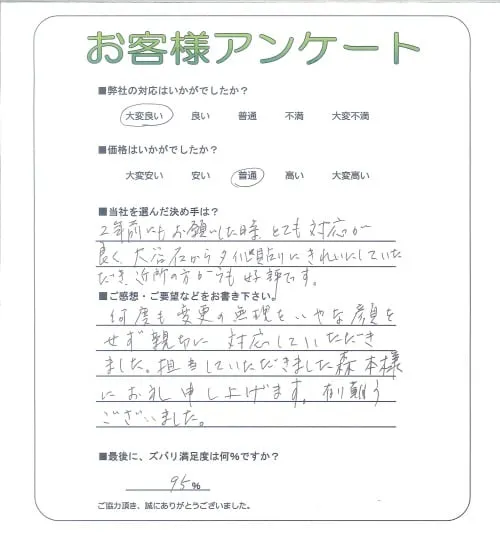 お客様アンケート
■弊社の対応はいかがでしたか？
大変良い 良い 普通 不満 大変不満
■価格はいかがでしたか？
大変安い 安い 普通 高い 大変高い
■当社を選んだ決め手は？
2年前にもお願いした時、とても対応が
良く、大谷石からタイル貼りにきれいにしていた
だき、近所の方からも好評です。
■ご感想・ご要望などをお書き下さい。
何度も変更の無理をいやな顔を
せず親切に対応していただき
ました。担当していただきました森本様
にお礼申し上げます。有り難う
ございました。
■最後に、ズバリ満足度は何％ですか？
95％
ご協力頂き、誠にありがとうございました。